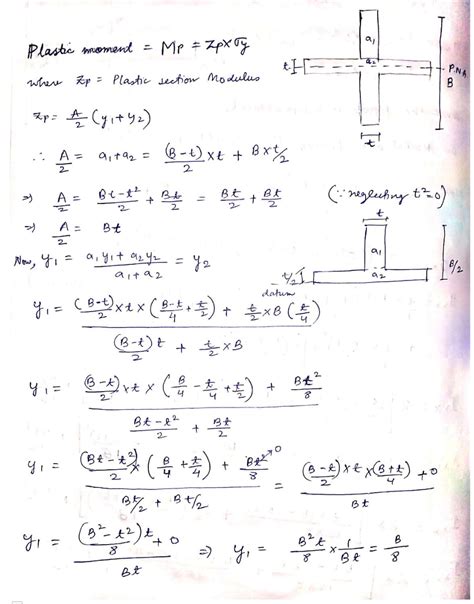 Plastic moment = Mp = Zp×σy
where Zp = Plastic section Modulus
Zp = A/2 (y1+y2)
∴ A/2 = a1+a2 = (B-t)/2 × t + B×t/2
⇒ A/2 = (Bt-t²)/2 + Bt/2 = Bt/2 + Bt/2 (∵ neglecting t²=0)
⇒ A/2 = Bt
Now, y1 = (a1y1 + a2y2)/(a1+a2) = y2
y1 = ((B-t)/2 × t × ((B-t)/4 + t/2) + t/2 × B (t/4)) / ((B-t)/2 t + t/2 × B)
y1 = ((B-t)/2 × t × (B/4 - t/4 + t/2) + Bt²/8) / ((Bt-t²)/2 + Bt/2)
y1 = ((Bt-t²)/2 × (B/4 + t/4) + Bt²/8 → 0) / (Bt/2 + Bt/2) = ((B-t)/2 × t × (B+t)/4 + 0) / Bt
y1 = ((B²-t²)t/8 + 0) / Bt ⇒ y1 = B²t/8 × 1/Bt = B/8
a1
a2
t
P.N.A
B
t
t
a1
a2
t/2
datum
B/2